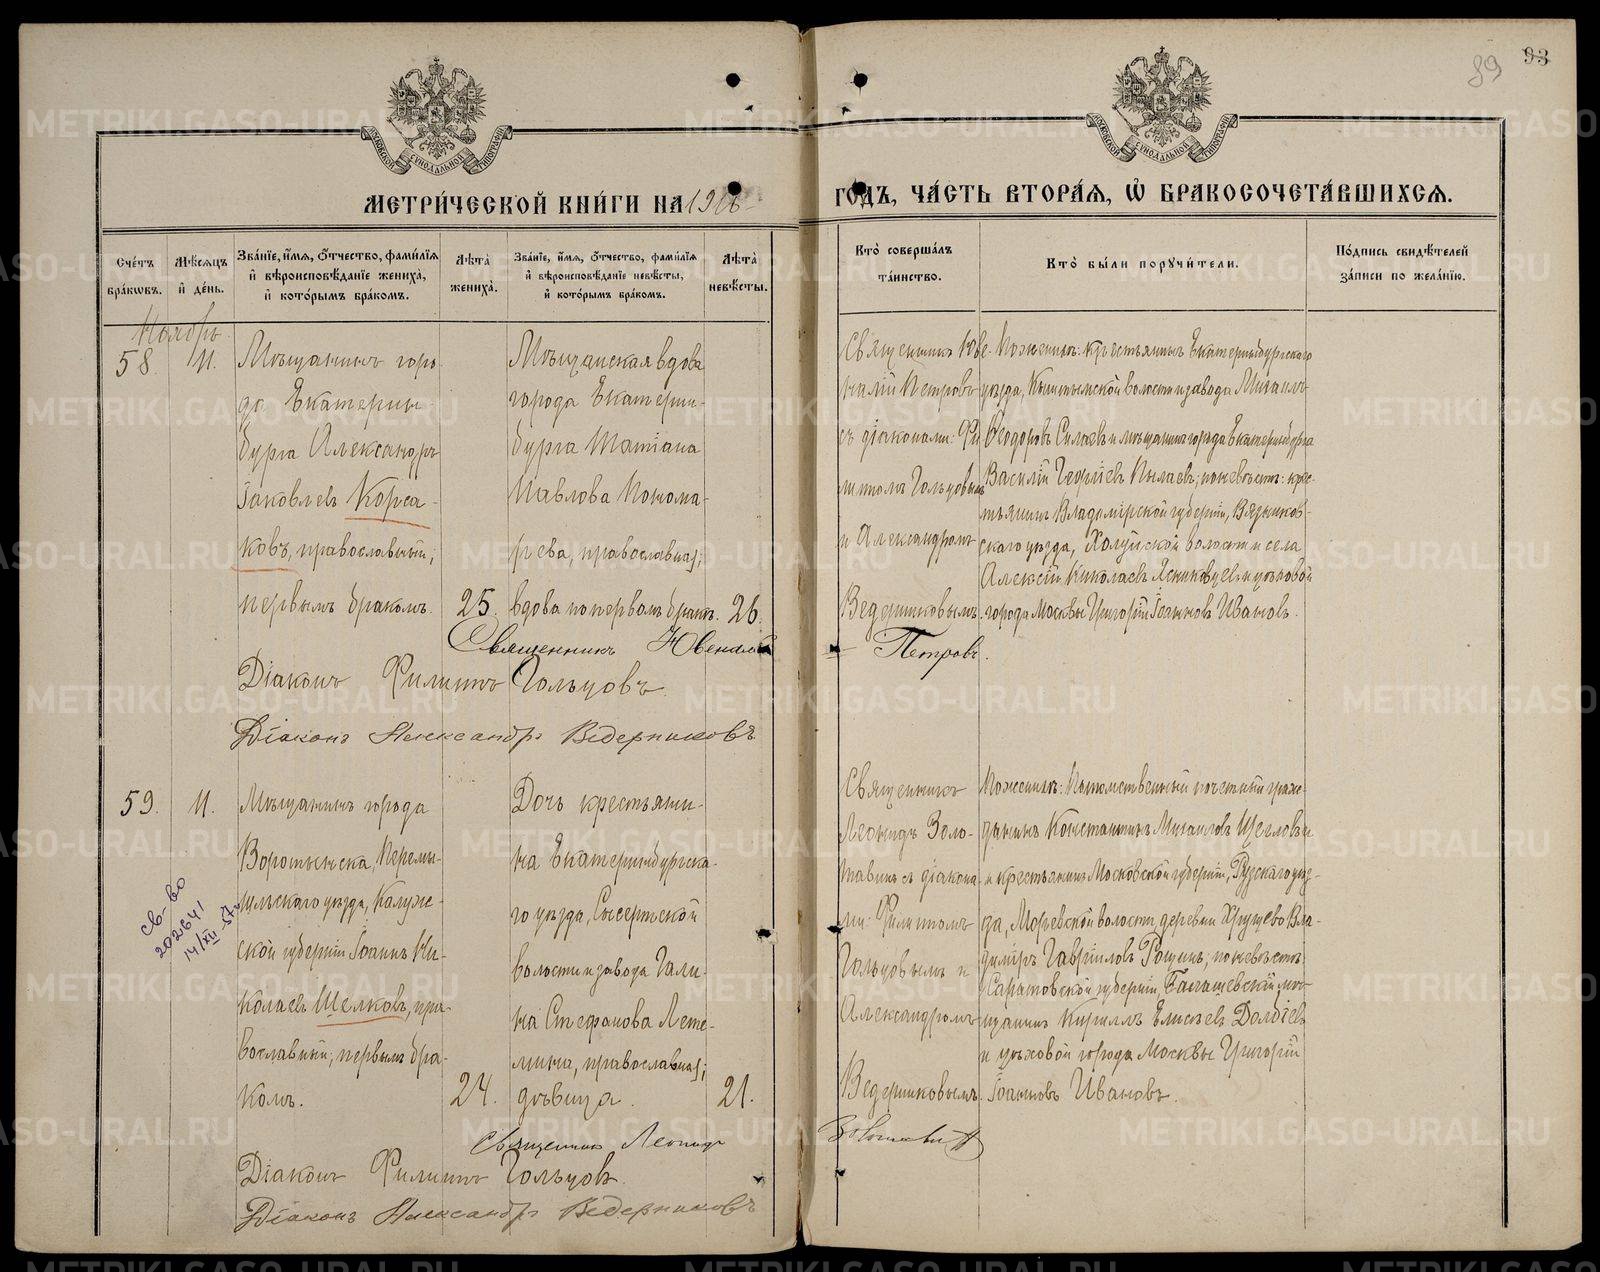 93
89
МОСКОВСКОЙ СѴНОДАЛЬНОЙ ТИПОГРАФІИ
МОСКОВСКОЙ СѴНОДАЛЬНОЙ ТИПОГРАФІИ
МЕТРИ́ЧЕСКОЙ КНИ́ГИ НА 19
ГОДЪ, ЧА́СТЬ ВТОРА́Я, Ѡ҆ БРАКОСОЧЕТА́ВШИХСЯ.
Сче́тъ бра́ковъ.
Мѣ́сяцъ и҆ де́нь.
Зва́нїе, и҆́мя, ѻ҆́тчество, фами́лїя и҆ вѣроисповѣ́данїе жениха̀, и҆ кото́рымъ бра́комъ.
Лѣта̀ жениха̀.
Зва́нїе, и҆́мя, ѻ҆́тчество, фами́лїя и҆ вѣроисповѣ́данїе невѣ́сты, и҆ кото́рымъ бра́комъ.
Лѣта̀ невѣ́сты.
Кто̀ соверша́лъ та́инство.
Кто̀ бы́ли порꙋчи́тели.
По́дпись свидѣ́телей за́писи по жела́нїю.
Ноябрь
58
11.
Мѣщанинъ горо-
да Екатерин-
бурга Александръ
Іаковлевъ Корса-
ковъ, православный,
первымъ бракомъ.
25.
Мѣщанская вдова
города Екатерин-
бурга Татіана
Павлова Понома-
рева, православная;
вдова по первомъ бракѣ.
26.
Священникъ Юве-
налій Петровъ
съ діаконами: Фи-
липпомъ Гольцовымъ
и Александромъ
Ведерниковымъ.
По женихѣ: крестьянинъ Екатеринбургскаго
уѣзда, Кыштымской волости и завода Михаилъ
Ѳеодоровъ Силаевъ и мѣщанинъ города Екатеринбурга
Василій Георгіевъ Пылаевъ; по невѣстѣ: крес-
тьянинъ Владимірской губерніи, Вязников-
скаго уѣзда, Холуйской волости и села
Алексій Николаевъ и цѣховой
города Москвы Григорій Іоанновъ Ивановъ.
Священникъ Ювеналій Петровъ.
Діаконъ Филиппъ Гольцовъ.
Діаконъ Александръ Ведерниковъ
59.
11.
Мѣщанинъ города
Воротынска, Перемы-
шльскаго уѣзда, Калуж-
ской губерніи Іоаннъ Ни-
колаевъ Щелковъ, пра-
вославный, первымъ бра-
комъ.
24.
Дочь крестьяни-
на Екатеринбургска-
го уѣзда, Сысертской
волости и завода Гали-
на Стефанова Лете-
мина, православная;
дѣвица.
21.
Священникъ
Леонидъ Золо-
тавинъ съ діакона-
ми: Филиппомъ
Гольцовымъ и
Александромъ
Ведерниковымъ.
По женихѣ: Потомственный почетный граж-
данинъ Константинъ Михаиловъ Щегловъ
и крестьянинъ Московской губерніи, Рузскаго уѣз-
да, Моревской волости, деревни Хрущево Вла-
диміръ Гавріиловъ Рощинъ; по невѣстѣ:
Саратовской губерніи, Балашевскій мѣ-
щанинъ Кириллъ Елисѣевъ
и цѣховой города Москвы Григорій
Іоанновъ Ивановъ.
св-во
202641
14/XII-57г
Священникъ Леонидъ Золотавинъ
Діаконъ Филиппъ Гольцовъ.
Діаконъ Александръ Ведерниковъ
METRIKI.GASO-URAL.RU